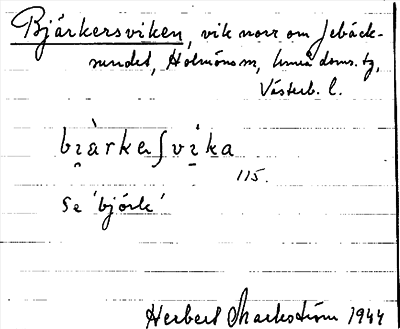 Bjärkersviken, vik norr om Jebäck-
sundet, Holmöns sn, Umeå doms. tg,
Västerb. l.
bi̯àrkeʃvìka
115.
Se 'björk'
Herbert Markström 1944